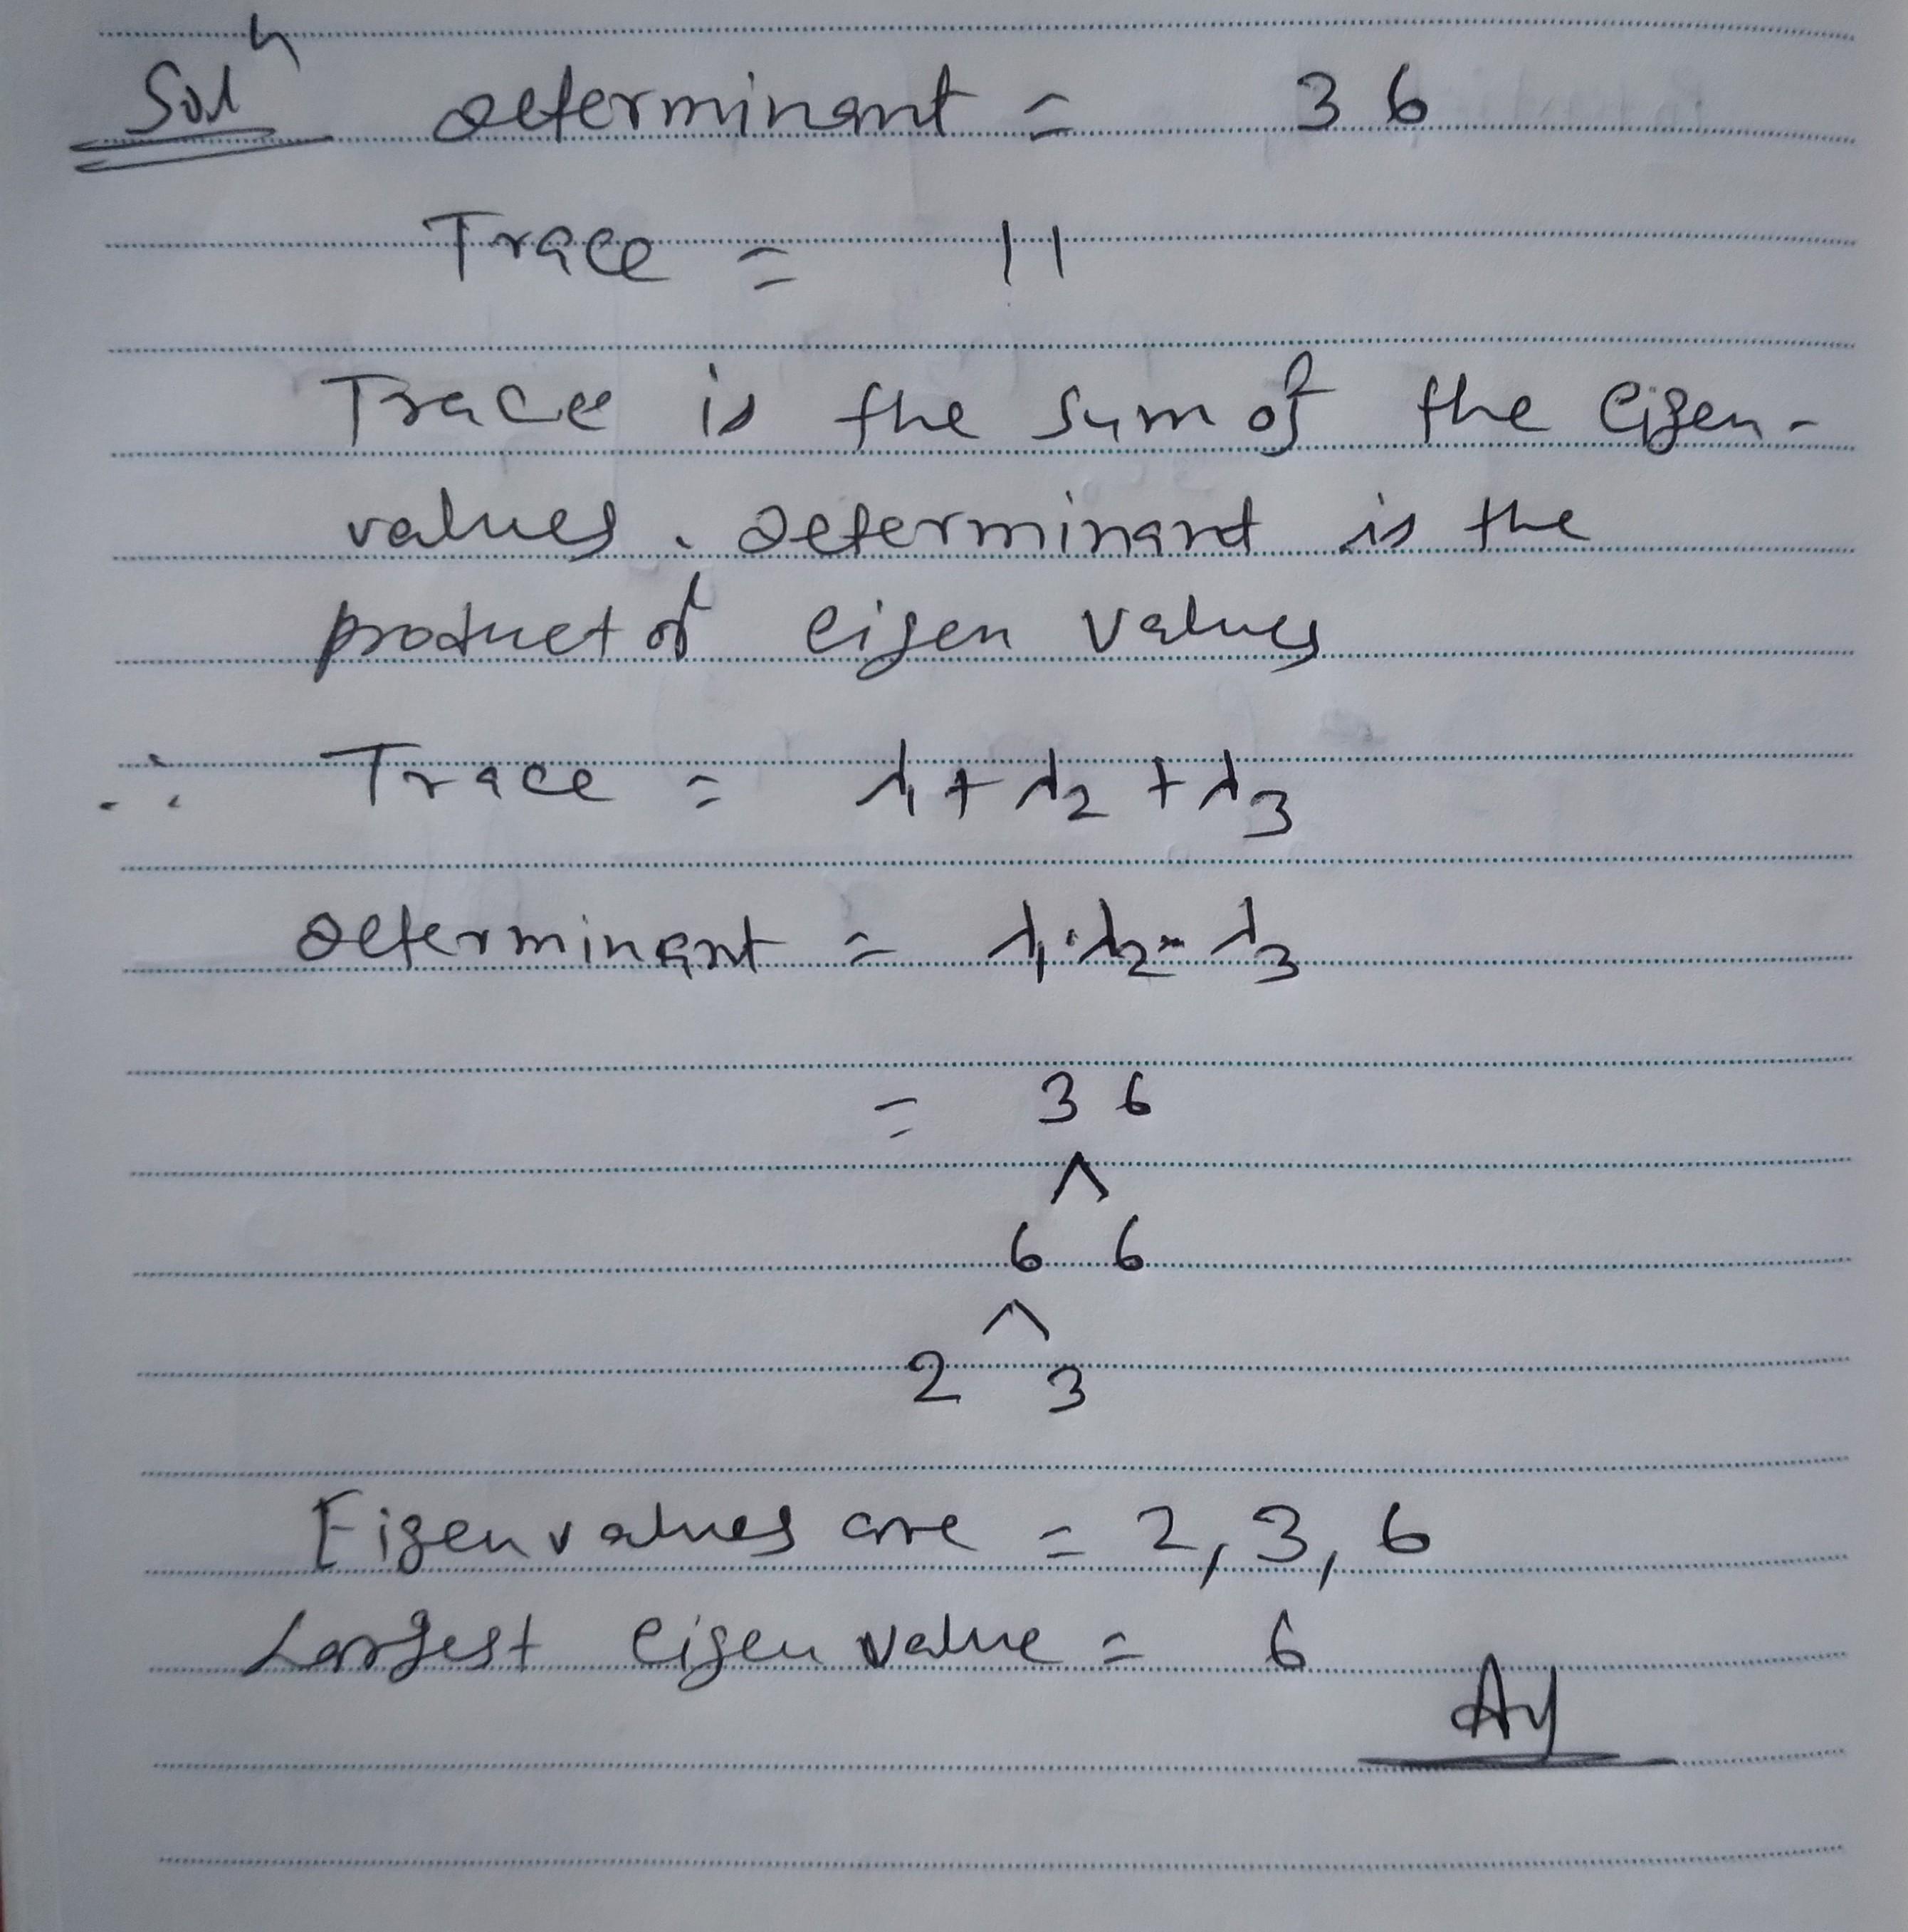 Solⁿ Determinant = 36
Trace = 11
Trace is the sum of the eigen-
values. Determinant is the
product of eigen values
∴ Trace = λ₁ + λ₂ + λ₃
Determinant = λ₁·λ₂·λ₃
= 36
^
6 6
^
2 3
Eigenvalues are = 2, 3, 6
Largest eigen value = 6